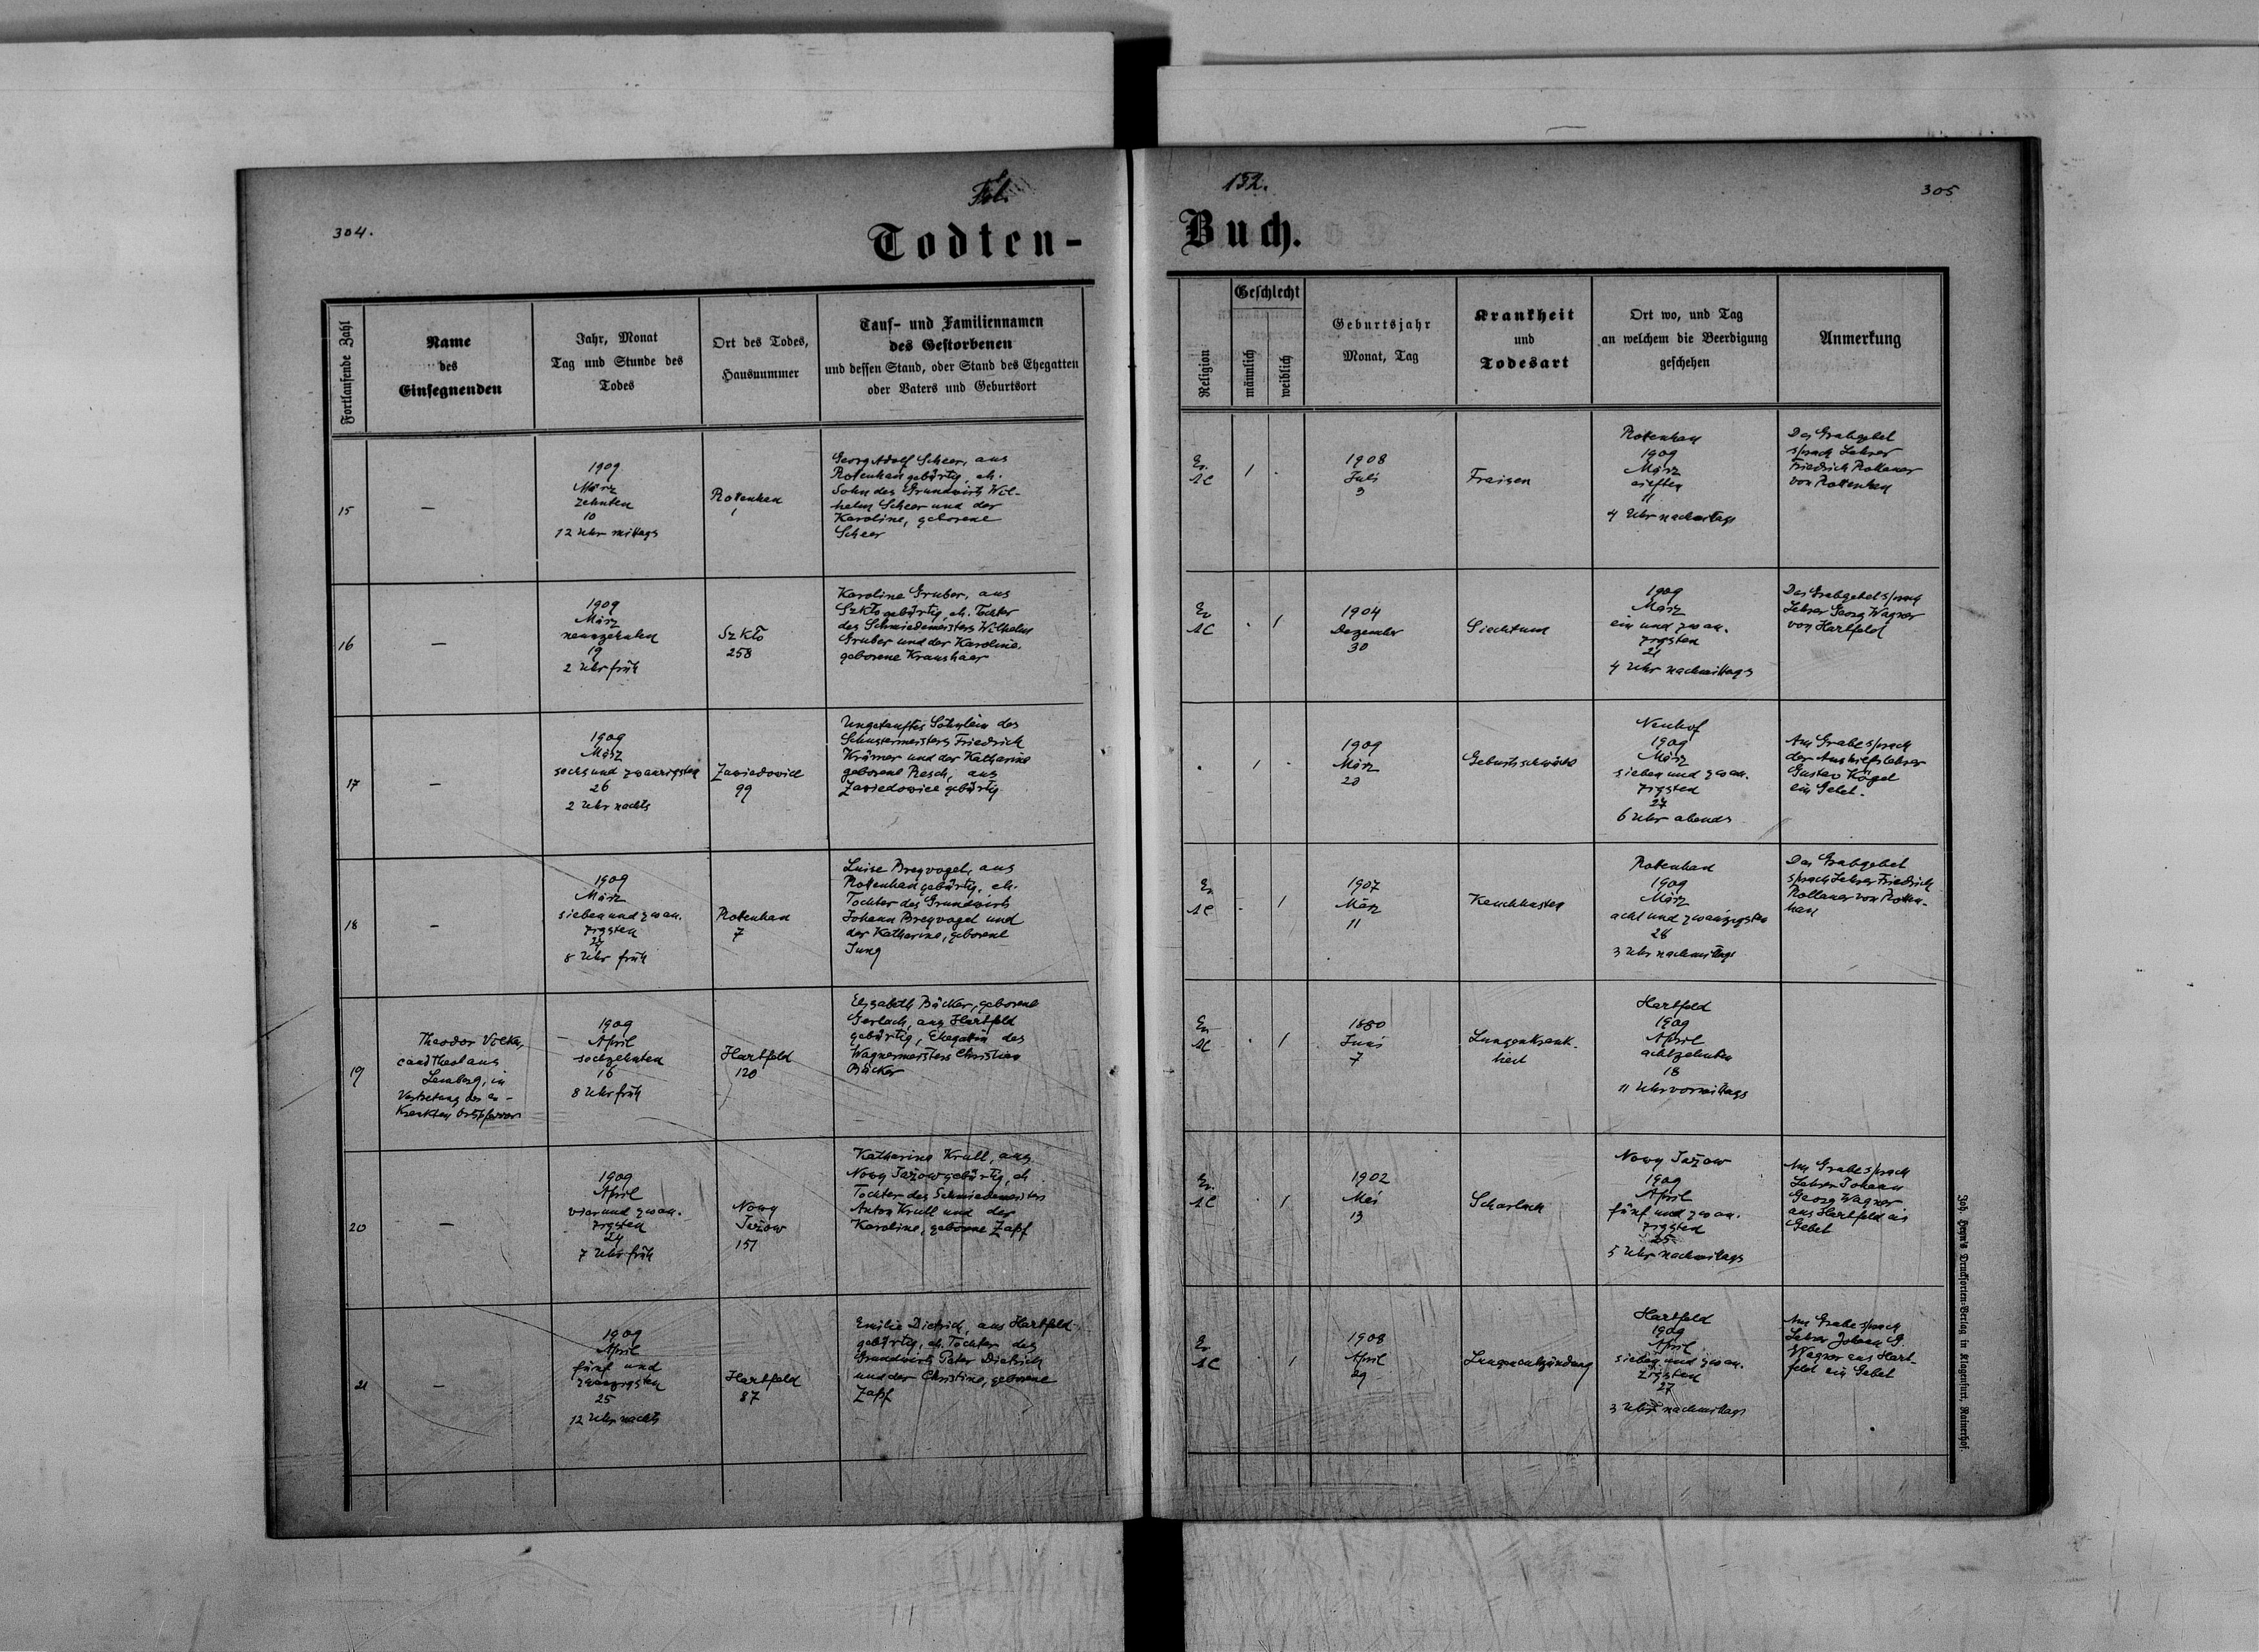 304.
Fol.
152.
305
Todten-
Buch.
Fortlaufende Zahl
Name
des
Einsegnenden
Jahr, Monat
Tag und Stunde des
Todes
Ort des Todes,
Hausnummer
Tauf- und Familiennamen
des Gestorbenen
und dessen Stand, oder Stand des Ehegatten
oder Vaters und Geburtsort
Religion
Geschlecht
männlich
weiblich
Geburtsjahr
Monat, Tag
Krankheit
und
Todesart
Ort wo, und Tag
an welchem die Beerdigung
geschehen
Anmerkung
15
—
1909
März
zehnten
10
12 Uhr mittags
Rottenhan
1
Georg Adolf Scheer, aus
Rottenhan gebürtig, eh.
Sohn des Grundwirts Wil-
helm Scheer und der
Karoline, geborene
Scheer
Ev.
AC
1
1908
Juli
3
Fraisen
Rottenhan
1909
März
elften
11
4 Uhr nachmittags
Das Grabgebet
sprach Lehrer
Friedrich Rollauer
von Rottenhan
16
—
1909
März
neunzehnten
19
2 Uhr früh
Szkło
258
Karoline Gruber, aus
Szkło gebürtig, eh. Tochter
des Schmiedemeisters Wilhelm
Gruber und der Karoline,
geborene Kraushaar
Ev
AC
1
1904
Dezember
30
Siechtum
1909
März
ein und zwan-
zigsten
21
4 Uhr nachmittags
Das Grabgebet sprach
Lehrer Georg Wagner
von Hartfeld
17
—
1909
März
sechsundzwanzigsten
26
2 Uhr nachts
Zawiedowice
99
Ungetauftes Söhnlein des
Schustermeisters Friedrich
Krämer und der Katharina
geborene Resch, aus
Zawiedowice gebürtig
1
1909
März
20
Geburtsschwäche
Neuhof
1909
März
sieben und zwan-
zigsten
27
6 Uhr abends
Am Grabe sprach
der Aushilfslehrer
Gustav Kögel
ein Gebet.
18
—
1909
März
sieben und zwan-
zigsten
27
8 Uhr früh
Rottenhan
7
Luise Bregvogel, aus
Rottenhan gebürtig, eh.
Tochter des Grundwirts
Johann Bregvogel und
der Katharina, geborene
Jung
Ev
AC
1
1907
März
11
Keuchhusten
Rottenhan
1909
März
acht und zwanzigsten
28
3 Uhr nachmittags
Das Grabgebet
sprach Lehrer Friedrich
Rollauer von Rotten-
han
19
Theodor Völker,
cand theol aus
Lemberg, in
Vertretung des er-
krankten Ortspfarrers
1909
April
sechzehnten
16
8 Uhr früh
Hartfeld
120
Elisabeth Bäcker, geborene
Gerlach, aus Hartfeld
gebürtig, Ehegattin des
Wagnermeisters Christian
Bäcker
Ev
AC
1
1880
Juni
7
Lungenkrank-
heit
Hartfeld
1909
April
achtzehnten
18
11 Uhr vormittags
20
—
1909
April
vier und zwan-
zigsten
24
7 Uhr früh
Nowy
Jażow
151
Katharina Krull, aus
Nowy Jażow gebürtig, eh
Tochter des Schmiedemeisters
Anton Krull und der
Karoline, geborene Zapf
Ev.
AC
1
1902
Mai
13
Scharlach
Nowy Jażow
1909
April
fünf und zwan-
zigsten
25
5 Uhr nachmittags
Am Grabe sprach
Lehrer Johann
Georg Wagner
aus Hartfeld ein
Gebet
21
—
1909
April
fünf und
zwanzigsten
25
12 Uhr nachts
Hartfeld
87
Emilie Dietrich, aus Hartfeld
gebürtig, eh. Tochter des
Grundwirts Peter Dietrich
und der Christine, geborene
Zapf
Ev
AC
1
1908
April
29
Lungenentzündung
Hartfeld
1909
April
sieben und zwan-
zigsten
27
3 Uhr nachmittags
Am Grabe sprach
Lehrer Johann G.
Wagner aus Hart-
feld ein Gebet
Joh. Heyn's Drucksorten-Verlag in Klagenfurt, Rainerhof.